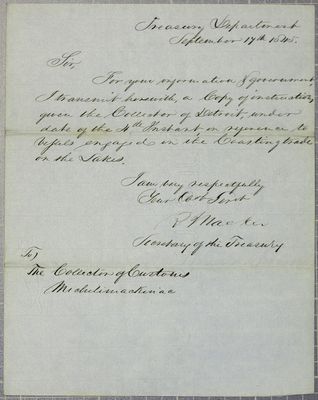 Treasury Department
September 17th 1845.
Sir,
For your information & government
I transmit herewith, a Copy of instructions
given the Collector of Detroit, under
date of the 4th Instant in reference to
Vessels engaged in the Coasting trade
on the Lakes.
I am very respectfully
Your Obt Servt
R J Walker
Secretary of the Treasury
To)
The Collector of Customs
Michilimackinac